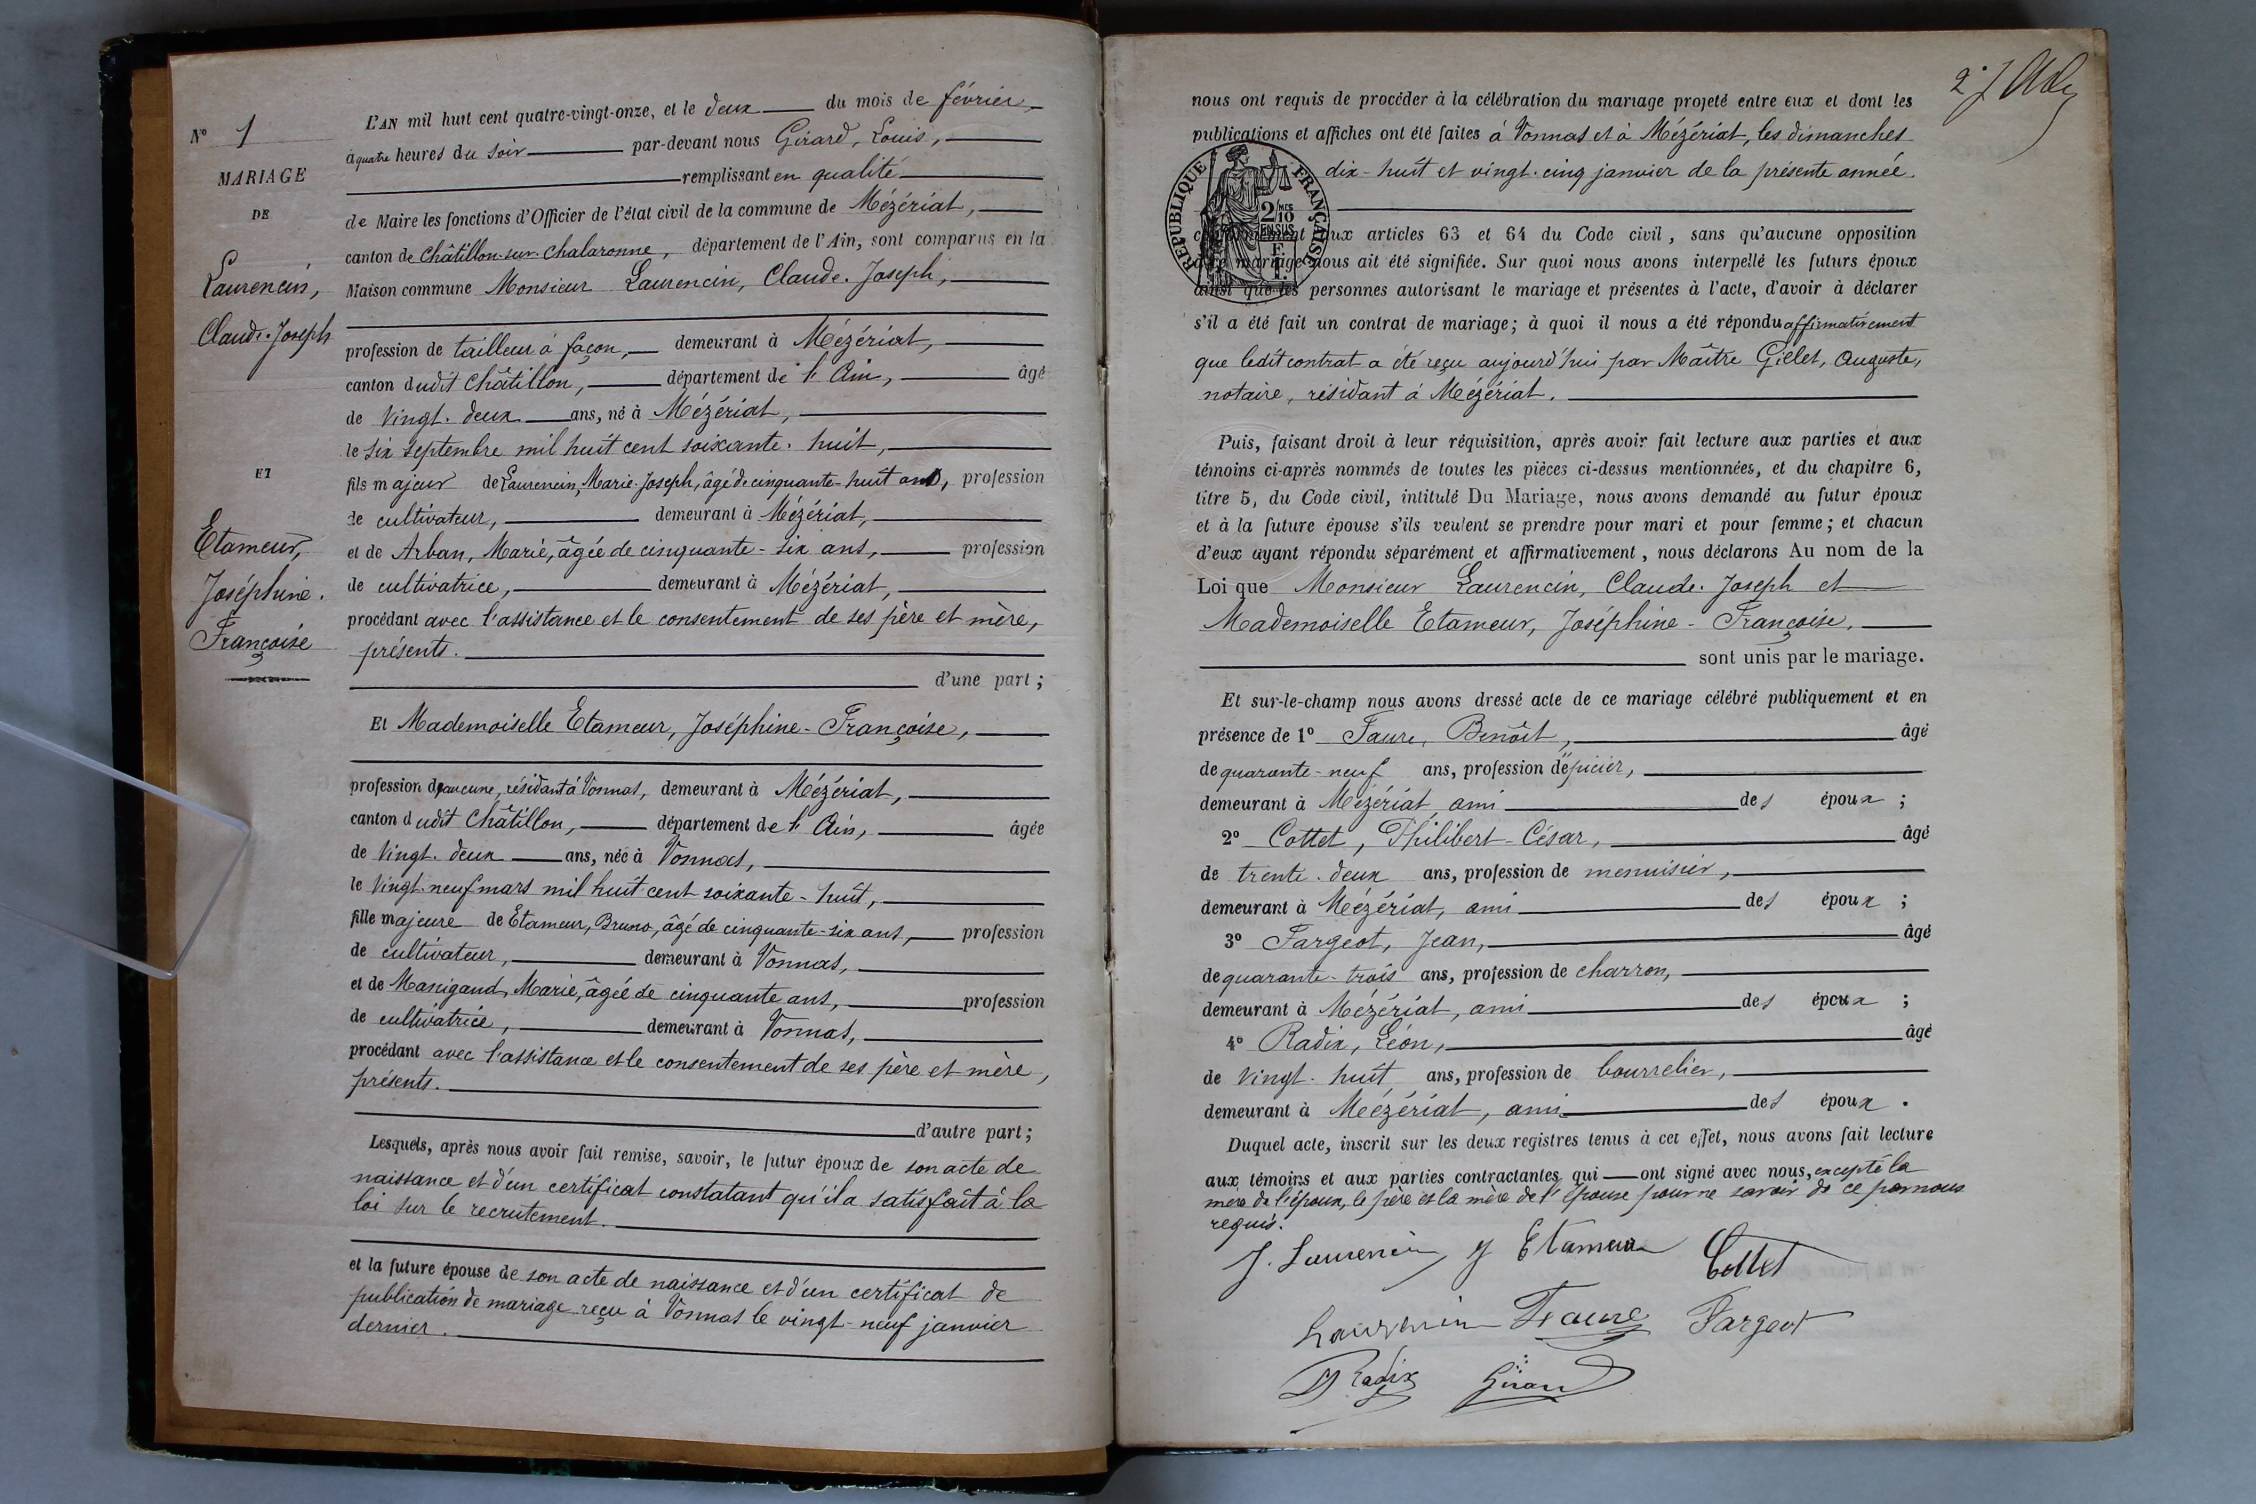 N° 1
MARIAGE
DE
Laurencin,
Claude-Joseph
ET
Etameur,
Joséphine-
Françoise
L'AN mil huit cent quatre-vingt-onze, et le deux du mois de février
à quatre heures du soir par-devant nous Girard, Louis,
remplissant en qualité
de Maire les fonctions d'Officier de l'état civil de la commune de Mézériat,
canton de Châtillon-sur-Chalaronne, département de l'Ain, sont comparus en la
Maison commune Monsieur Laurencin, Claude-Joseph,
profession de tailleur à façon, demeurant à Mézériat,
canton dudit Châtillon, département de l'Ain, âgé
de vingt-deux ans, né à Mézériat,
le six septembre mil huit cent soixante-huit,
fils majeur de Laurencin, Marie-Joseph, âgé de cinquante-huit ans, profession
de cultivateur, demeurant à Mézériat,
et de Arban, Marie, âgée de cinquante-six ans, profession
de cultivatrice, demeurant à Mézériat,
procédant avec l'assistance et le consentement de ses père et mère,
présents.
d'une part;
Et Mademoiselle Etameur, Joséphine-Françoise,
profession d'aucune, résidant à Vonnas, demeurant à Mézériat,
canton dudit Châtillon, département de l'Ain, âgée
de vingt-deux ans, née à Vonnas,
le vingt-neuf mars mil huit cent soixante-huit,
fille majeure de Etameur, Bruno, âgé de cinquante-six ans, profession
de cultivateur, demeurant à Vonnas,
et de Manigand, Marie, âgée de cinquante ans, profession
de cultivatrice, demeurant à Vonnas,
procédant avec l'assistance et le consentement de ses père et mère,
présents.
d'autre part;
Lesquels, après nous avoir fait remise, savoir, le futur époux de son acte de
naissance et d'un certificat constatant qu'il a satisfait à la
loi sur le recrutement.
et la future épouse de son acte de naissance et d'un certificat de
publication de mariage reçu à Vonnas le vingt-neuf janvier
dernier.
2e
nous ont requis de procéder à la célébration du mariage projeté entre eux et dont les
publications et affiches ont été faites à Vonnas et à Mézériat, les dimanches
dix-huit et vingt-cinq janvier de la présente année.
RÉPUBLIQUE FRANÇAISE
2/10
EN SUS
1 F.
conformément aux articles 63 et 64 du Code civil, sans qu'aucune opposition
à ce mariage nous ait été signifiée. Sur quoi nous avons interpellé les futurs époux
ainsi que les personnes autorisant le mariage et présentes à l'acte, d'avoir à déclarer
s'il a été fait un contrat de mariage; à quoi il nous a été répondu affirmativement
que ledit contrat a été reçu aujourd'hui par Maître Gillet, Auguste,
notaire, résidant à Mézériat.
Puis, faisant droit à leur réquisition, après avoir fait lecture aux parties et aux
témoins ci-après nommés de toutes les pièces ci-dessus mentionnées, et du chapitre 6,
titre 5, du Code civil, intitulé Du Mariage, nous avons demandé au futur époux
et à la future épouse s'ils veulent se prendre pour mari et pour femme; et chacun
d'eux ayant répondu séparément et affirmativement, nous déclarons Au nom de la
Loi que Monsieur Laurencin, Claude-Joseph et
Mademoiselle Etameur, Joséphine-Françoise,
sont unis par le mariage.
Et sur-le-champ nous avons dressé acte de ce mariage célébré publiquement et en
présence de 1° Faure, Benoît, âgé
de quarante-neuf ans, profession d'épicier,
demeurant à Mézériat, ami des époux;
2° Cottet, Philibert-César, âgé
de trente-deux ans, profession de menuisier,
demeurant à Mézériat, ami des époux;
3° Fargeot, Jean, âgé
de quarante-trois ans, profession de charron,
demeurant à Mézériat, ami des époux;
4° Radix, Léon, âgé
de vingt-huit ans, profession de bourrelier,
demeurant à Mézériat, ami des époux.
Duquel acte, inscrit sur les deux registres tenus à cet effet, nous avons fait lecture
aux témoins et aux parties contractantes qui ont signé avec nous, excepté la
mère de l'époux, le père et la mère de l'épouse pour ne savoir de ce par nous
requis.
J. Laurencin J Etameur Cottet
Laurencin Faure Fargeot
Radix Girard